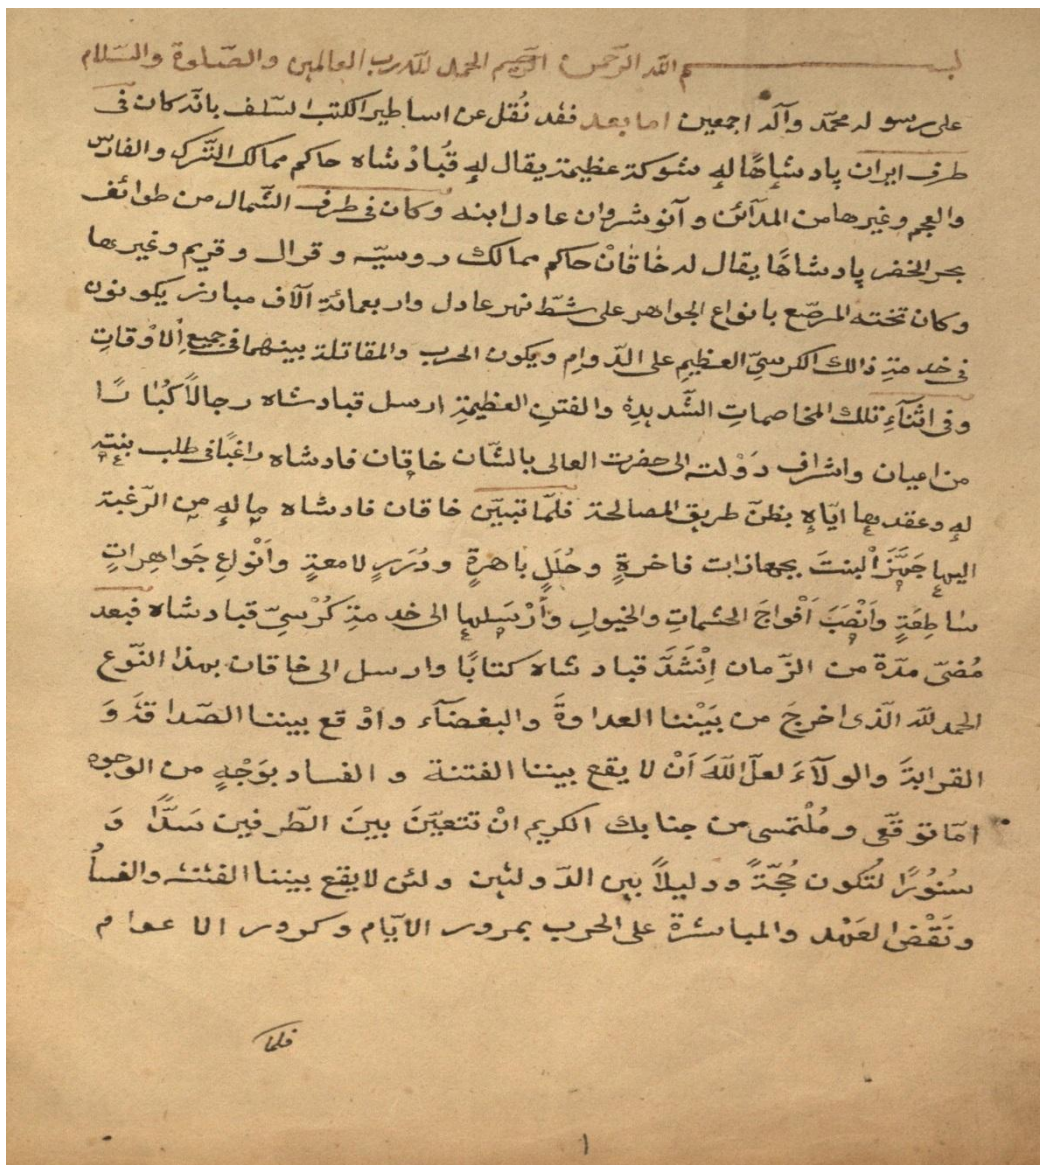 بسم الله الرّحمن الرّحيم الحمد لله رب العالمين والصّلوة والسّلام
على رسوله محمّد وآله اجمعين اما بعد فقد نُقل عن اساطير الكتب السّلف بانّه كان فى
طرف ايران پادشاهًا له شوكة عظيمة يقال له قُبادْشاه حاكم ممالك التّرك والفارس
والعجم وغيرها من المدآئن و آنوشروان عادل ابنه وكان فى طرف الشّمال من طوائف
بحر الخضر پادشاهًا يقال له خٰاقٰانْ حاكم ممالك روسيّه و قرال و قريم وغيرها
وكان تخته المرصّع بانواع الجواهر على شطّ نهر عادل واربعمائة آلاف مبارز يكونون
فى خدمة ذالك الكرسىّ العظيمِ على الدّوام ويكون الحرب والمقاتلة بينهما فى جميع الاوْقاتِ
وفى اثْنآءِ تلك المخاصماتِ الشّديدةِ والفتنِ العظيمةِ ارسل قبادشاه رجالاً كُبٰارًا
من اعيان واشراف دَوْلته الى حضرت العالى بالشّان خاقان فادشاه راغبًا فى طلب بنتهِ
لهِ وعقدها ايّاه بظنّ طريق المصالحة فلمّا تبيّن خاقان فادشاه ما لهِ من الرّغبة
اليها جَهَّزَ الْبنتَ بجهازات فاخرةٍ وحُلَلٍ باهرةٍ ودُرَرٍ لامعةٍ وأنْواعِ جَواهِراتٍ
سٰاطِعَةٍ وَانْصَبَ اَفْواجَ الحشماتِ والخيولِ وأرْسَلها الى خدمةِ كُرْسىّ قبادشاه فبعد
مُضىّ مدّة من الزّمان اِنْشَدَ قبادشاه كتابًا وارسل الى خاقان بهذا النّوع
الحمد لله الّذى اخرجَ من بَيْننا العداوةَ والبغضآء واوْقع بيننا الصّداقةَ وَ
القرابةَ والولآءَ لعلّ اللّهَ اَنْ لا يقع بيننا الفتنة و الفساد بوَجْهٍ من الوجوه
امّا توقّعى ومُلْتمسى من جنابك الكريم انْ تتعيّنَ بينَ الطّرفين سَدًّا وَ
سُنُوُرًا لتُكون حُجّةً ودليلاً بين الدّولتين ولئن لا يقع بيننا الفتنة والفسٰادُ
ونَقْضُ العَهْد والمباشرة على الحرب بمرور الايّام وكرور الاعوام
فلما
١